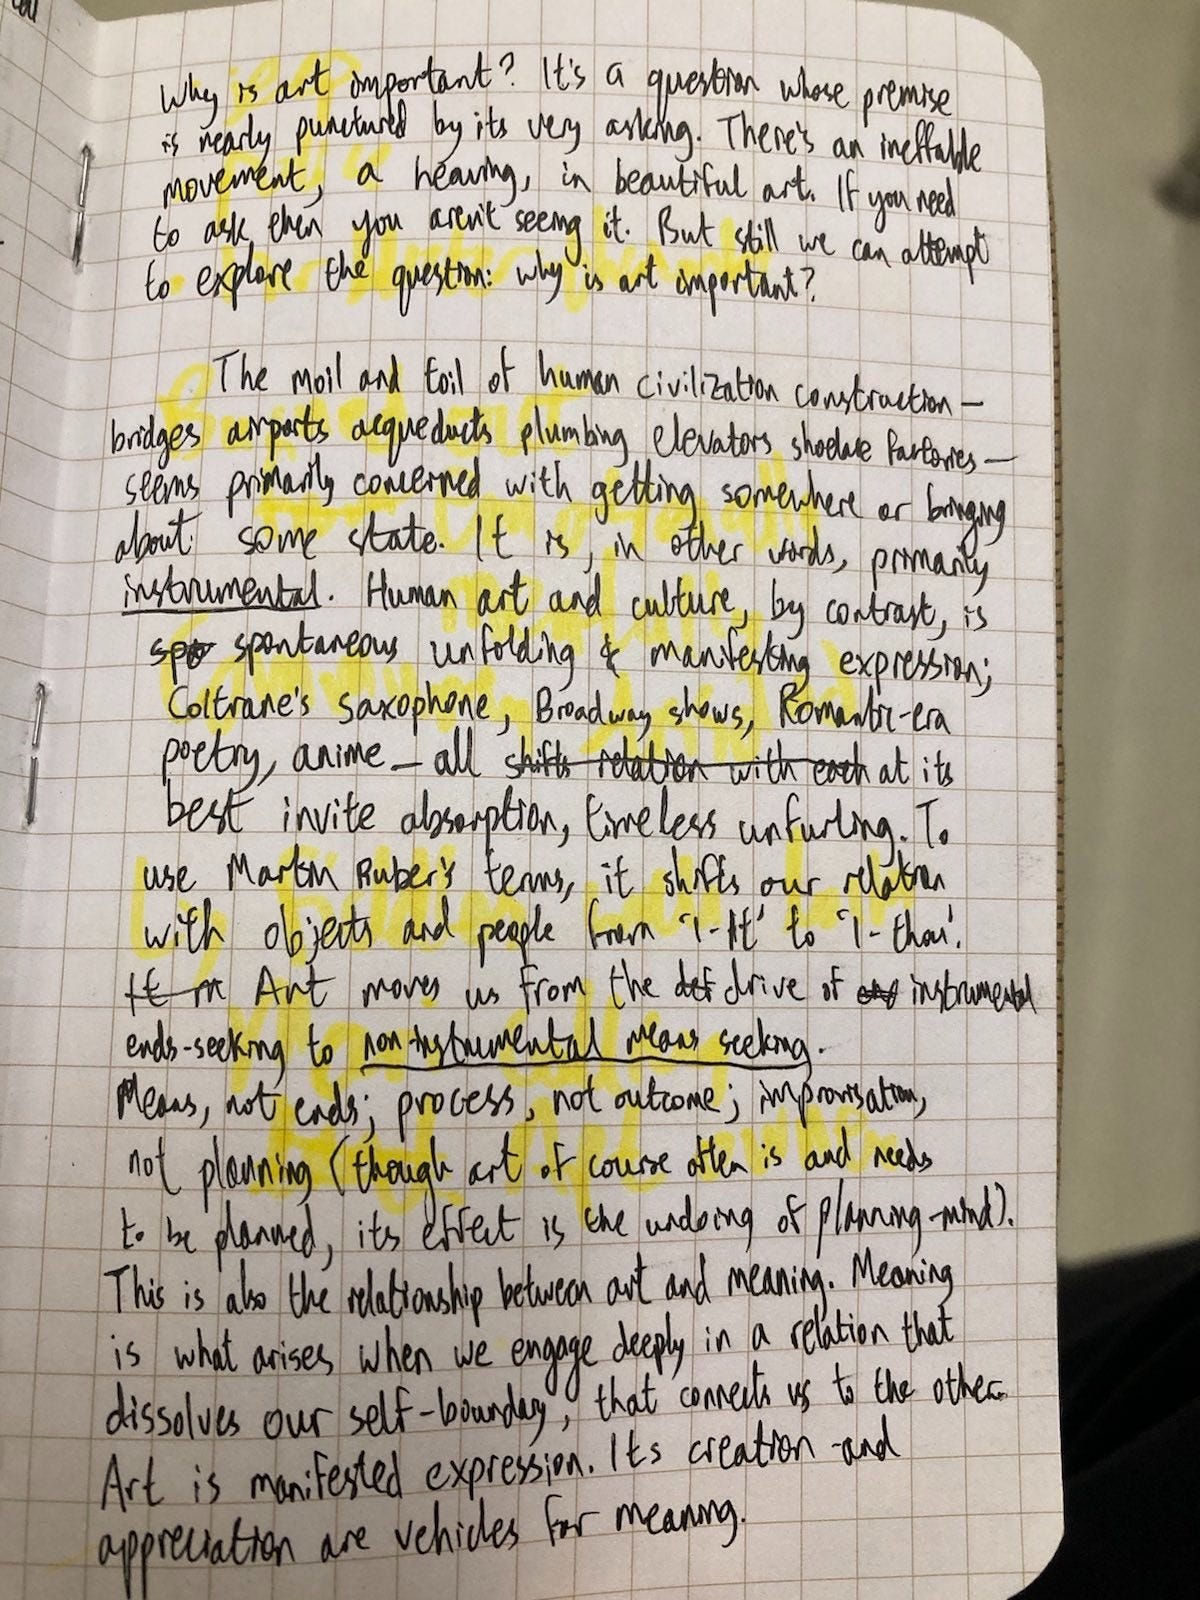 Why is art important? It's a question whose premise
is nearly punctured by its very asking. There's an ineffable
movement, a heaving, in beautiful art. If you need
to ask then you aren't seeing it. But still we can attempt
to explore the question: why is art important?
The moil and toil of human civilization construction—
bridges airports acqueducts plumbing elevators shoelace factories—
seems primarily concerned with getting somewhere or bringing
about some state. It is, in other words, primarily
instrumental. Human art and culture, by contrast, is
spo spontaneous unfolding & manifesting expression;
Coltrane's saxophone, Broadway shows, Romantic-era
poetry, anime — all shifts relation with each at its
best invite absorption, timeless unfurling. To
use Martin Buber's terms, it shifts our relation
with objects and people from 'I-It' to 'I-thou'.
It m Art moves us from the def drive of instrumental
ends-seeking to non-instrumental means seeking.
Means, not ends; process, not outcome; improvisation,
not planning (though art of course often is and needs
to be planned, its effect is the undoing of planning-mind).
This is also the relationship between art and meaning. Meaning
is what arises when we engage deeply in a relation that
dissolves our self-boundary, that connects us to the other.
Art is manifested expression. Its creation and
appreciation are vehicles for meaning.